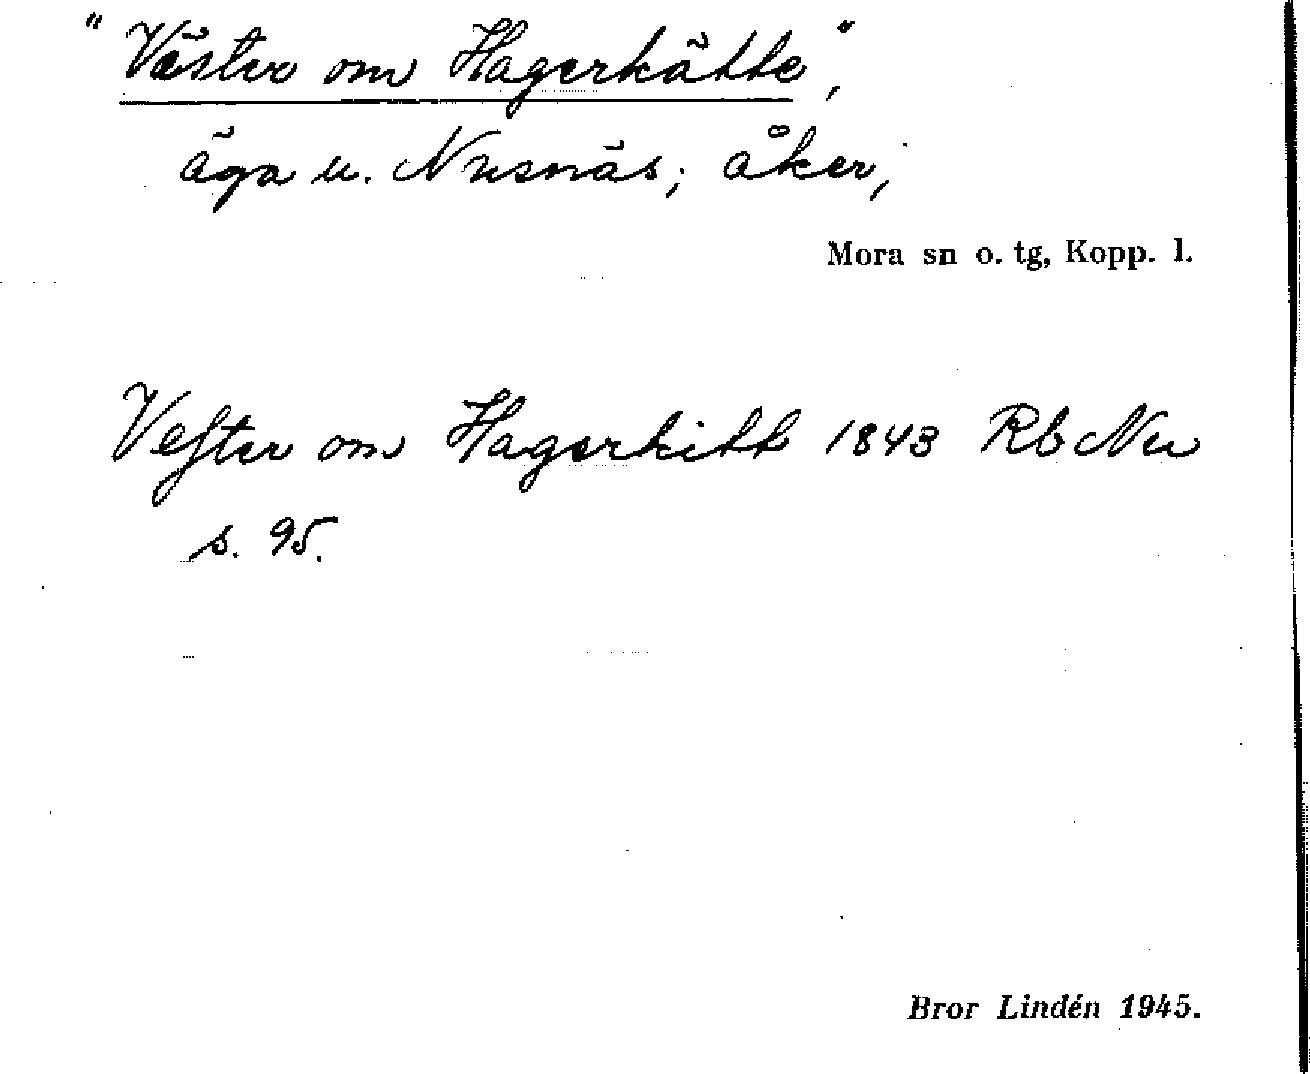 "Väster om Hagerkätte",
äga u. Nusnäs; åker,
Mora sn o. tg, Kopp. l.
Vester om Hagerkitt 1843 Rb Nu
s. 95.
Bror Lindén 1945.